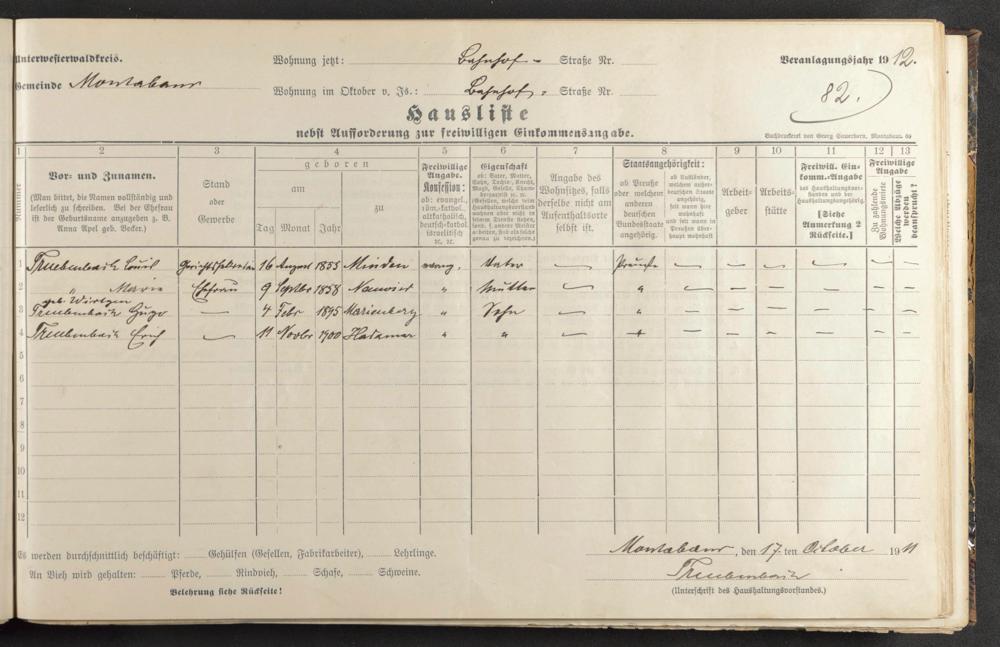 Unterwesterwaldkreis.
Wohnung jetzt: Bahnhof- Straße Nr.
Veranlagungsjahr 1912.
Gemeinde Montabaur
Wohnung im Oktober v. Js.: Bahnhof- Straße Nr.
82.
Hausliste
nebst Aufforderung zur freiwilligen Einkommensangabe.
Buchdruckerei von Georg Sauerborn, Montabaur.
1 2 3 4 5 6 7 8 9 10 11 12 13
Nummer
Vor- und Zunamen.
(Man bittet, die Namen vollständig und
leserlich zu schreiben. Bei der Ehefrau
ist der Geburtsname anzugeben z. B.
Anna Apel geb. Becker.)
Stand
oder
Gewerbe
geboren
am
zu
Tag Monat Jahr
Freiwillige
Angabe.
Konfession:
ob: evangel.,
röm.-kathol.
altkatholisch,
deutsch-kathol.
israelitisch
ꝛc. ꝛc.
Eigenschaft
ob: Vater, Mutter,
Angabe des
Wohnsitzes, falls
derselbe nicht am
Aufenthaltsorte
selbst ist.
Staatsangehörigkeit:
ob Preuße
oder welchem
anderen
deutschen
Bundesstaate
angehörig.
ob Ausländer,
welchem außer-
deutschen Staate
angehörig,
seit wann hier
wohnhaft
und seit wann in
Preußen über-
haupt wohnhaft
Arbeit-
geber
Arbeits-
stätte
Freiwill. Ein-
komm.-Angabe
des Haushaltungsvor-
standes und der
Haushaltungsangehörig.
[Siehe
Anmerkung 2
Rückseite.]
Freiwillige
Angabe
Zu zahlende
Wohnungsmiete
Welche Abzüge
werden
beansprucht?
1 Treubenbach Louis Gerichtssekretär 16 August 1855 Minden evang. Vater — Preuße — — — — — —
2 " Marie Ehefrau 9 Septbr 1858 Neuwied " Mutter — " — — — — — —
geb. Wirtgen
3 Treubenbach Hugo — 4 Febr 1895 Marienberg " Sohn — " — — — — — —
4 Treubenbach Erich — 11 Novbr 1900 Hadamar " " — " — — — — — —
5
6
7
8
9
10
11
12
Es werden durchschnittlich beschäftigt: Gehülfen (Gesellen, Fabrikarbeiter), Lehrlinge.
Montabaur, den 17. ten October 1911
An Vieh wird gehalten: Pferde, Rindvieh, Schafe, Schweine.
Treubenbach
Belehrung siehe Rückseite!
(Unterschrift des Haushaltungsvorstandes.)